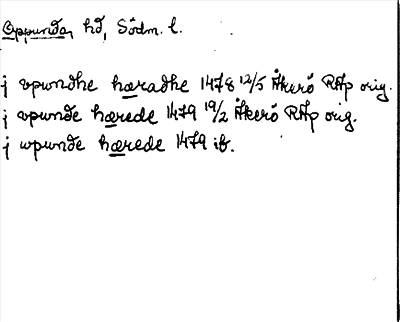 Oppunda, hd, Södm. l.
j vpundhe hæradhe 1478 12/5 Åkerö RAp orig.
j vpunde hærede 1479 19/2 Åkerö RAp orig.
j wpunde hærede 1479 ib.